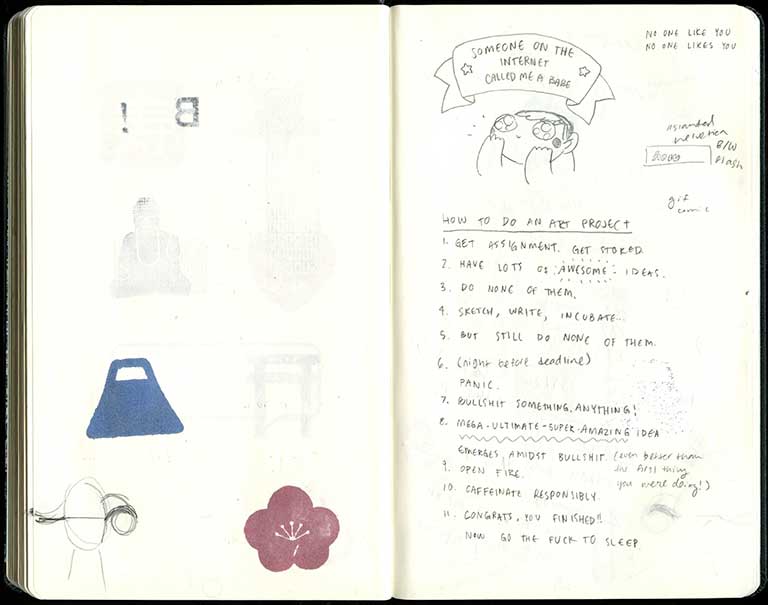 B
!
SOMEONE ON THE
INTERNET
CALLED ME A BABE
NO ONE LIKE YOU
NO ONE LIKES YOU
helvetica
B/W
flash
gif
comic
HOW TO DO AN ART PROJECT
1. GET ASSIGNMENT. GET STOKED.
2. HAVE LOTS OF AWESOME IDEAS.
3. DO NONE OF THEM.
4. SKETCH, WRITE, INCUBATE...
5. BUT STILL DO NONE OF THEM.
6. (night before deadline)
PANIC.
7. BULLSHIT SOMETHING, ANYTHING!
8. MEGA-ULTIMATE-SUPER-AMAZING IDEA
EMERGES AMIDST BULLSHIT. (even better than
the first thing
you were doing!)
9. OPEN FIRE.
10. CAFFEINATE RESPONSIBLY.
11. CONGRATS, YOU FINISHED!!
NOW GO THE FUCK TO SLEEP